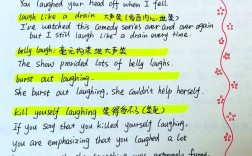 You laughed your head off when I fell.
laugh like a drain 大声笑
I've watched this comedy series over and over again
but I still laugh like a drain every time.
belly laugh: 毫无拘束地大声笑
The show provided lots of belly laughs.
burst out laughing.
She burst out laughing, she couldn't help herself.
kill youself laughing
If you say that you killed yourself laughing,
you are emphasizing that you laughed a lot